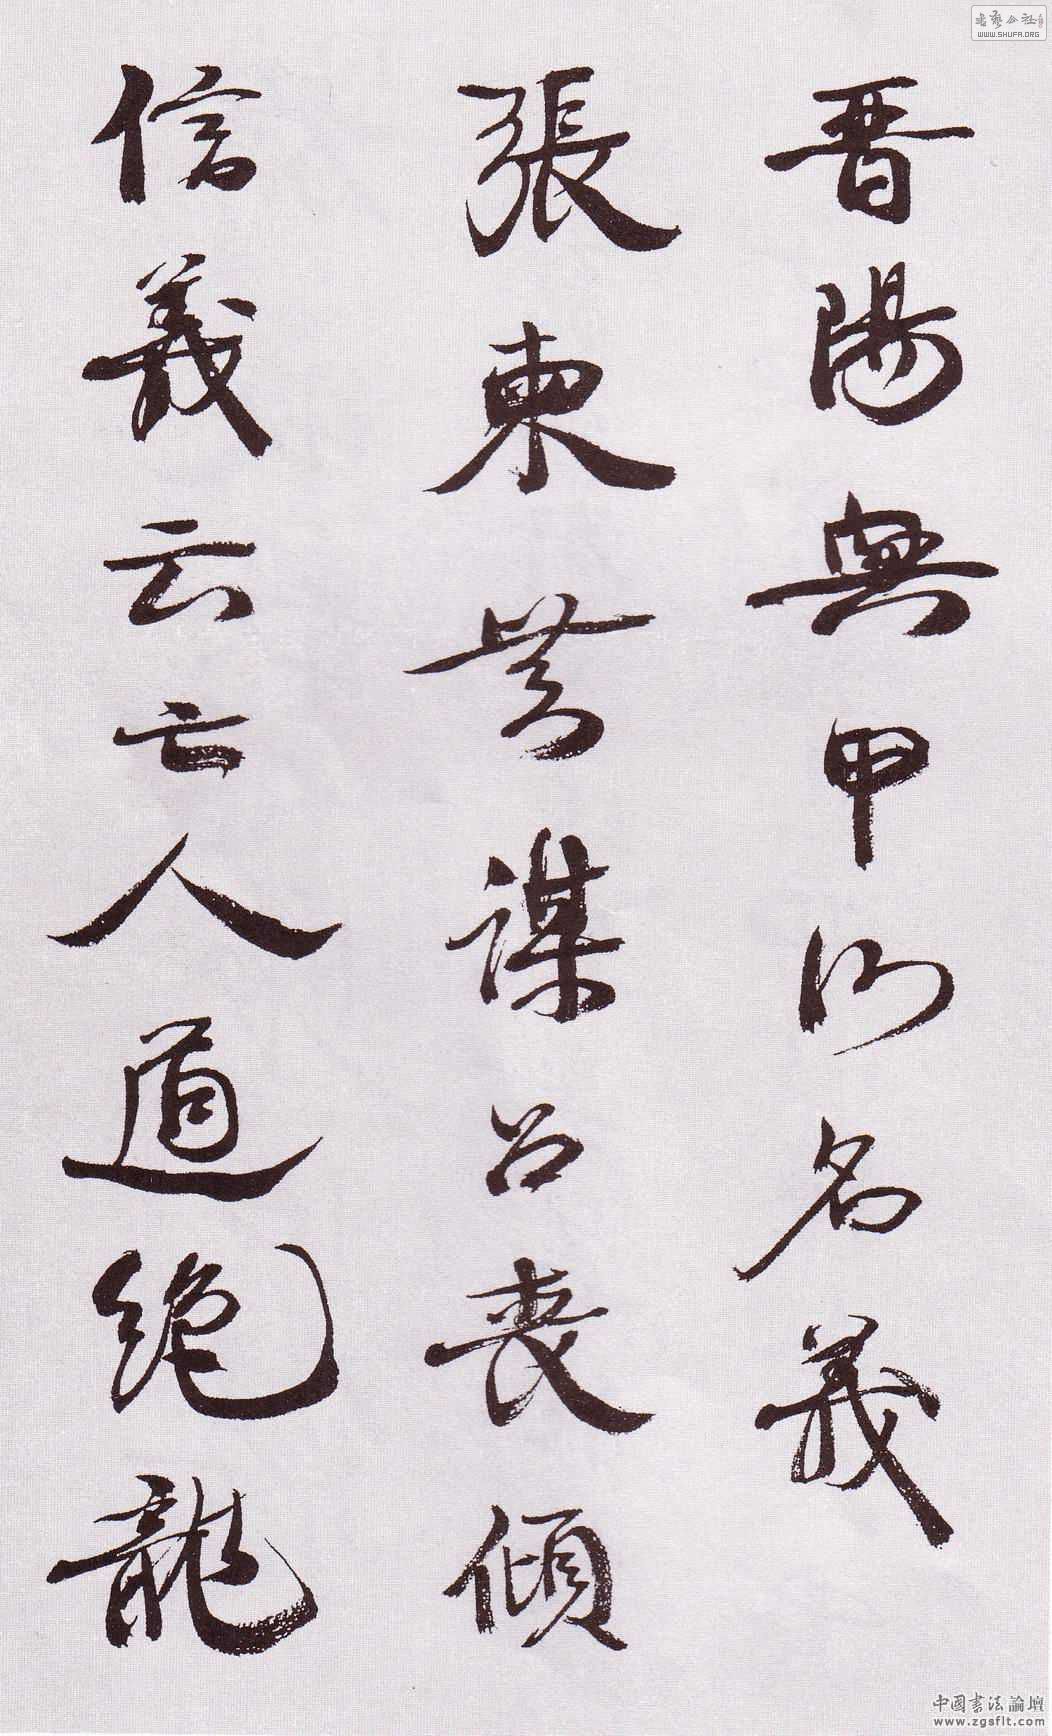 晋陽興甲以名義
張柬謀呂喪傾
信義云亡人道絶龍
書藝公社
WWW.SHUFA.ORG
中國書法論壇
www.zgsflt.com